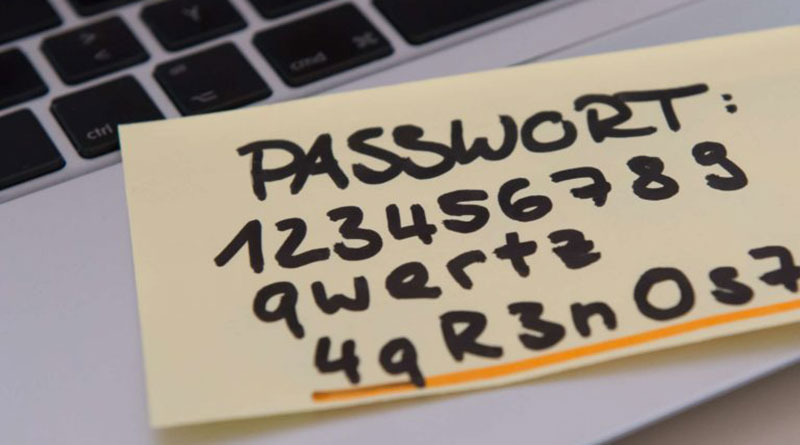 cmd ⌘
ctrl
PASSWORT:
123456789
qwertz
4qR3nOs7